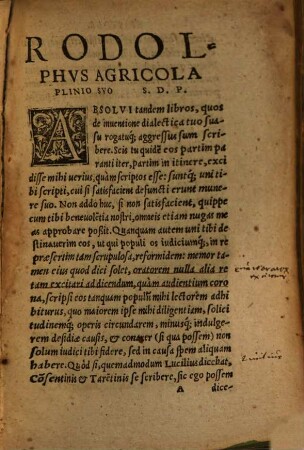 RODOL-
PHVS AGRICOLA
PLINIO SVO S. D. P.
ABSOLVI tandem libros, quos
de inuentione dialectica tuo sua
su rogatuq; aggressus sum scri
bere. Scis tu quidẽ eos partim pa
ranti iter, partim in itinere, exci
disse mihi uerius, quàm scriptos esse: suntq; uni ti
bi scripti, cui si satisfaciẽt defuncti erunt mune
re suo. Non addo huc, si non satisfacient, quippe
cum tibi beneuolẽtia nostri, omneis etiam nugas me
as approbare poßit. Quanquam autem uni tibi de
stinauerim eos, ut qui populi os iudiciumq;, in re
præsertim tam scrupulosa, reformidem: memor ta
men eius quod dici solet, oratorem nulla alia re
tam excitari ad dicendum, quàm audientium coro
na, scripsi eos tanquam populũ mihi lectorem adhi
biturus, quo maiorem ipse mihi diligentiam, solici
tudinemq; operis circundarem, minusq; indulge-
rem desidiæ causis, & conarer (si qua possem) non
solum iudici tibi fidere, sed in causa spem aliquam
habere. Quòd si, quemadmodum Lucilius dicebat,
Cõsentinis & Tarẽtinis se scribere, sic ego possem
A dice-